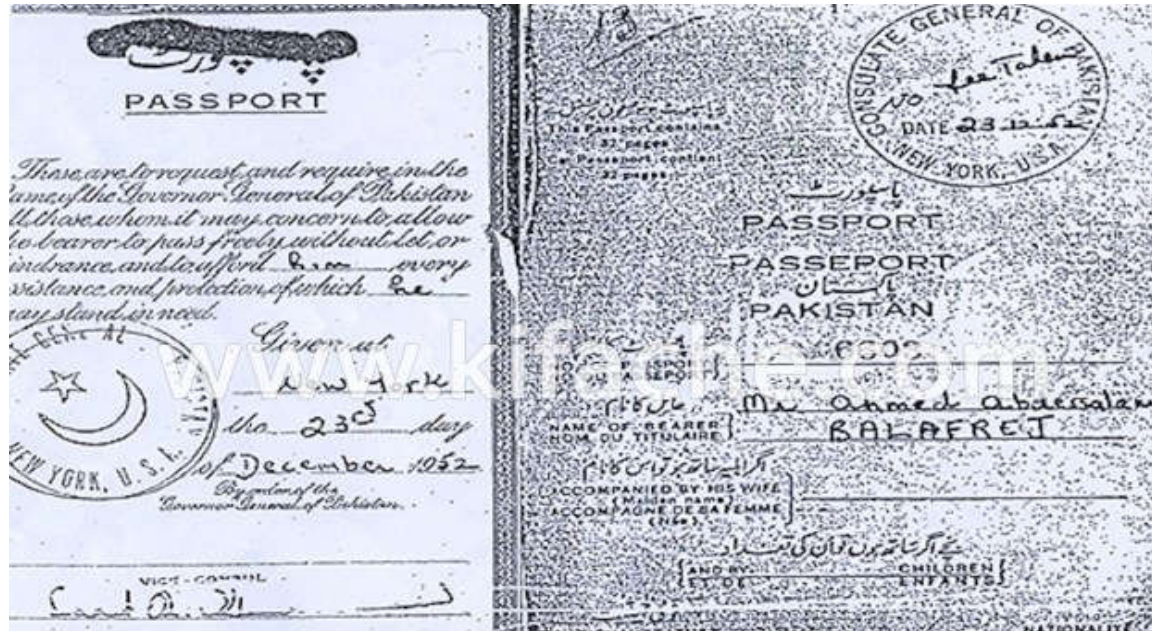 پاسپورٹ
PASSPORT
These are to request and require in the
ame of the Governor General of Pakistan
ll those whom it may concern to allow
e bearer to pass freely without let, or
indrance, and to afford him every
ssistance and protection, of which he
may stand in need.
Given at
New York
the 23rd day
of December 1952
By order of the
Governor General of Pakistan.
NEW YORK, U.S.A.
VICE-CONSUL
CONSULATE GENERAL OF PAKISTAN
NO
DATE 23.12.52
NEW YORK, U.S.A.
This Passport contains
32 pages
Ce Passeport contient
32 pages
پاسپورٹ
PASSPORT
PASSEPORT
پاکستان
PAKISTAN
NAME OF BEARER
NOM DU TITULAIRE
Mr Ahmed Abdessalam
BALAFREJ
اگر اہلیہ ساتھ ہو تو اس کا نام
ACCOMPANIED BY HIS WIFE
(Maiden name)
ACCOMPAGNE DE SA FEMME
(Née)
بچے اگر ساتھ ہوں تو ان کی تعداد
AND BY CHILDREN
ET DE ENFANTS
NATIONALITE
www.kifache.com